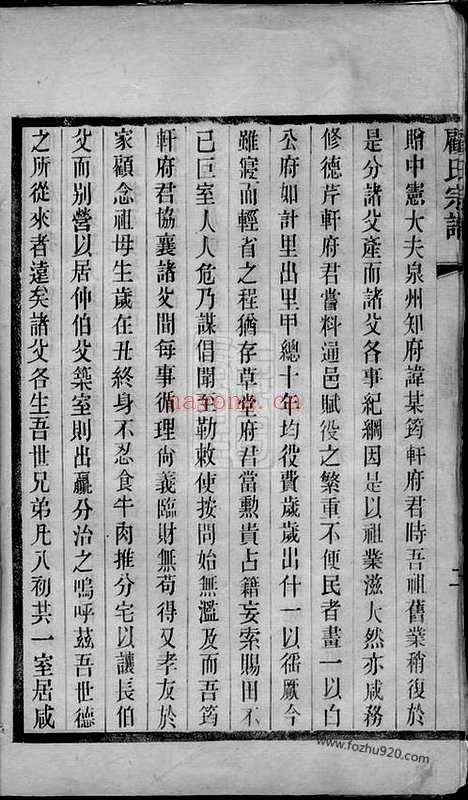 顧氏宗譜
贈中憲大夫泉州知府諱某筠軒府君時吾祖舊業稍復於
是分諸父產而諸父各事紀綱因是以祖業滋大然亦咸務
修德芹軒府君嘗料通邑賦役之繁重不便民者畫一以白
公府如計里出里甲總十年均役費歲歲出什一以獳厥今
雖寢而輕省之程猶存草堂府君當勲貴占籍妄索賜田不
已巨室人人危乃謀倡聞至勒敕使按問始無濫及而吾筠
軒府君協襄諸父間每事循理尚義臨財無苟得又孝友於
家顧念祖母生歲在丑終身不忍食牛肉推分宅以讓長伯
父而别營以居仲伯父築室則出羸分治之嗚呼茲吾世德
之所從來者遠矣諸父各生吾世兄弟凡八初共一室居咸
二
hayona.cn
www.fozhu920.com